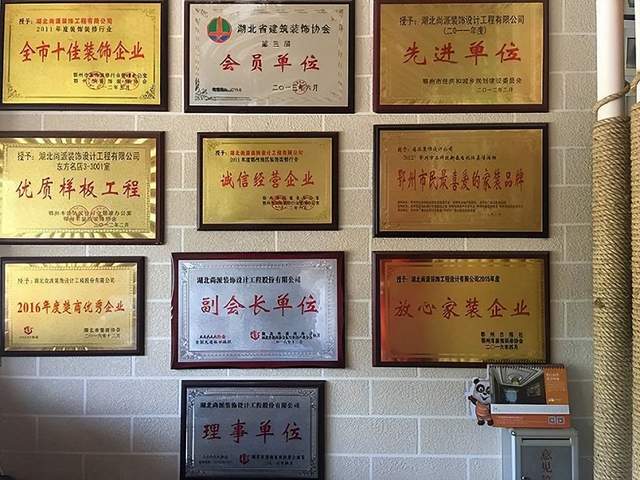 授予：湖北尚派装饰工程有限公司
2011年度装饰装修行业
全市十佳装饰企业
二〇一二年三月
湖北省建筑装饰协会
第三届
会员单位
二〇一三年六月
授予：湖北尚派装饰设计工程有限公司
（二〇一一年度）
先进单位
鄂州市住房和城乡规划建设委员会
二〇一二年二月
授予：湖北尚派装饰设计工程有限公司
东方名店3-3001室
优质样板工程
授予：湖北尚派装饰工程有限公司
诚信经营企业
鄂州市民最喜爱的家装品牌
授予：湖北尚派装饰设计工程股份有限公司
2016年度楚商优秀企业
湖北省装饰协会
二〇一六年十二月
湖北尚派装饰设计工程股份有限公司
副会长单位
授予：湖北尚派装饰工程设计有限公司2015年度
放心家装企业
二〇一六年四月
湖北尚派装饰设计工程股份有限公司
理事单位
意见